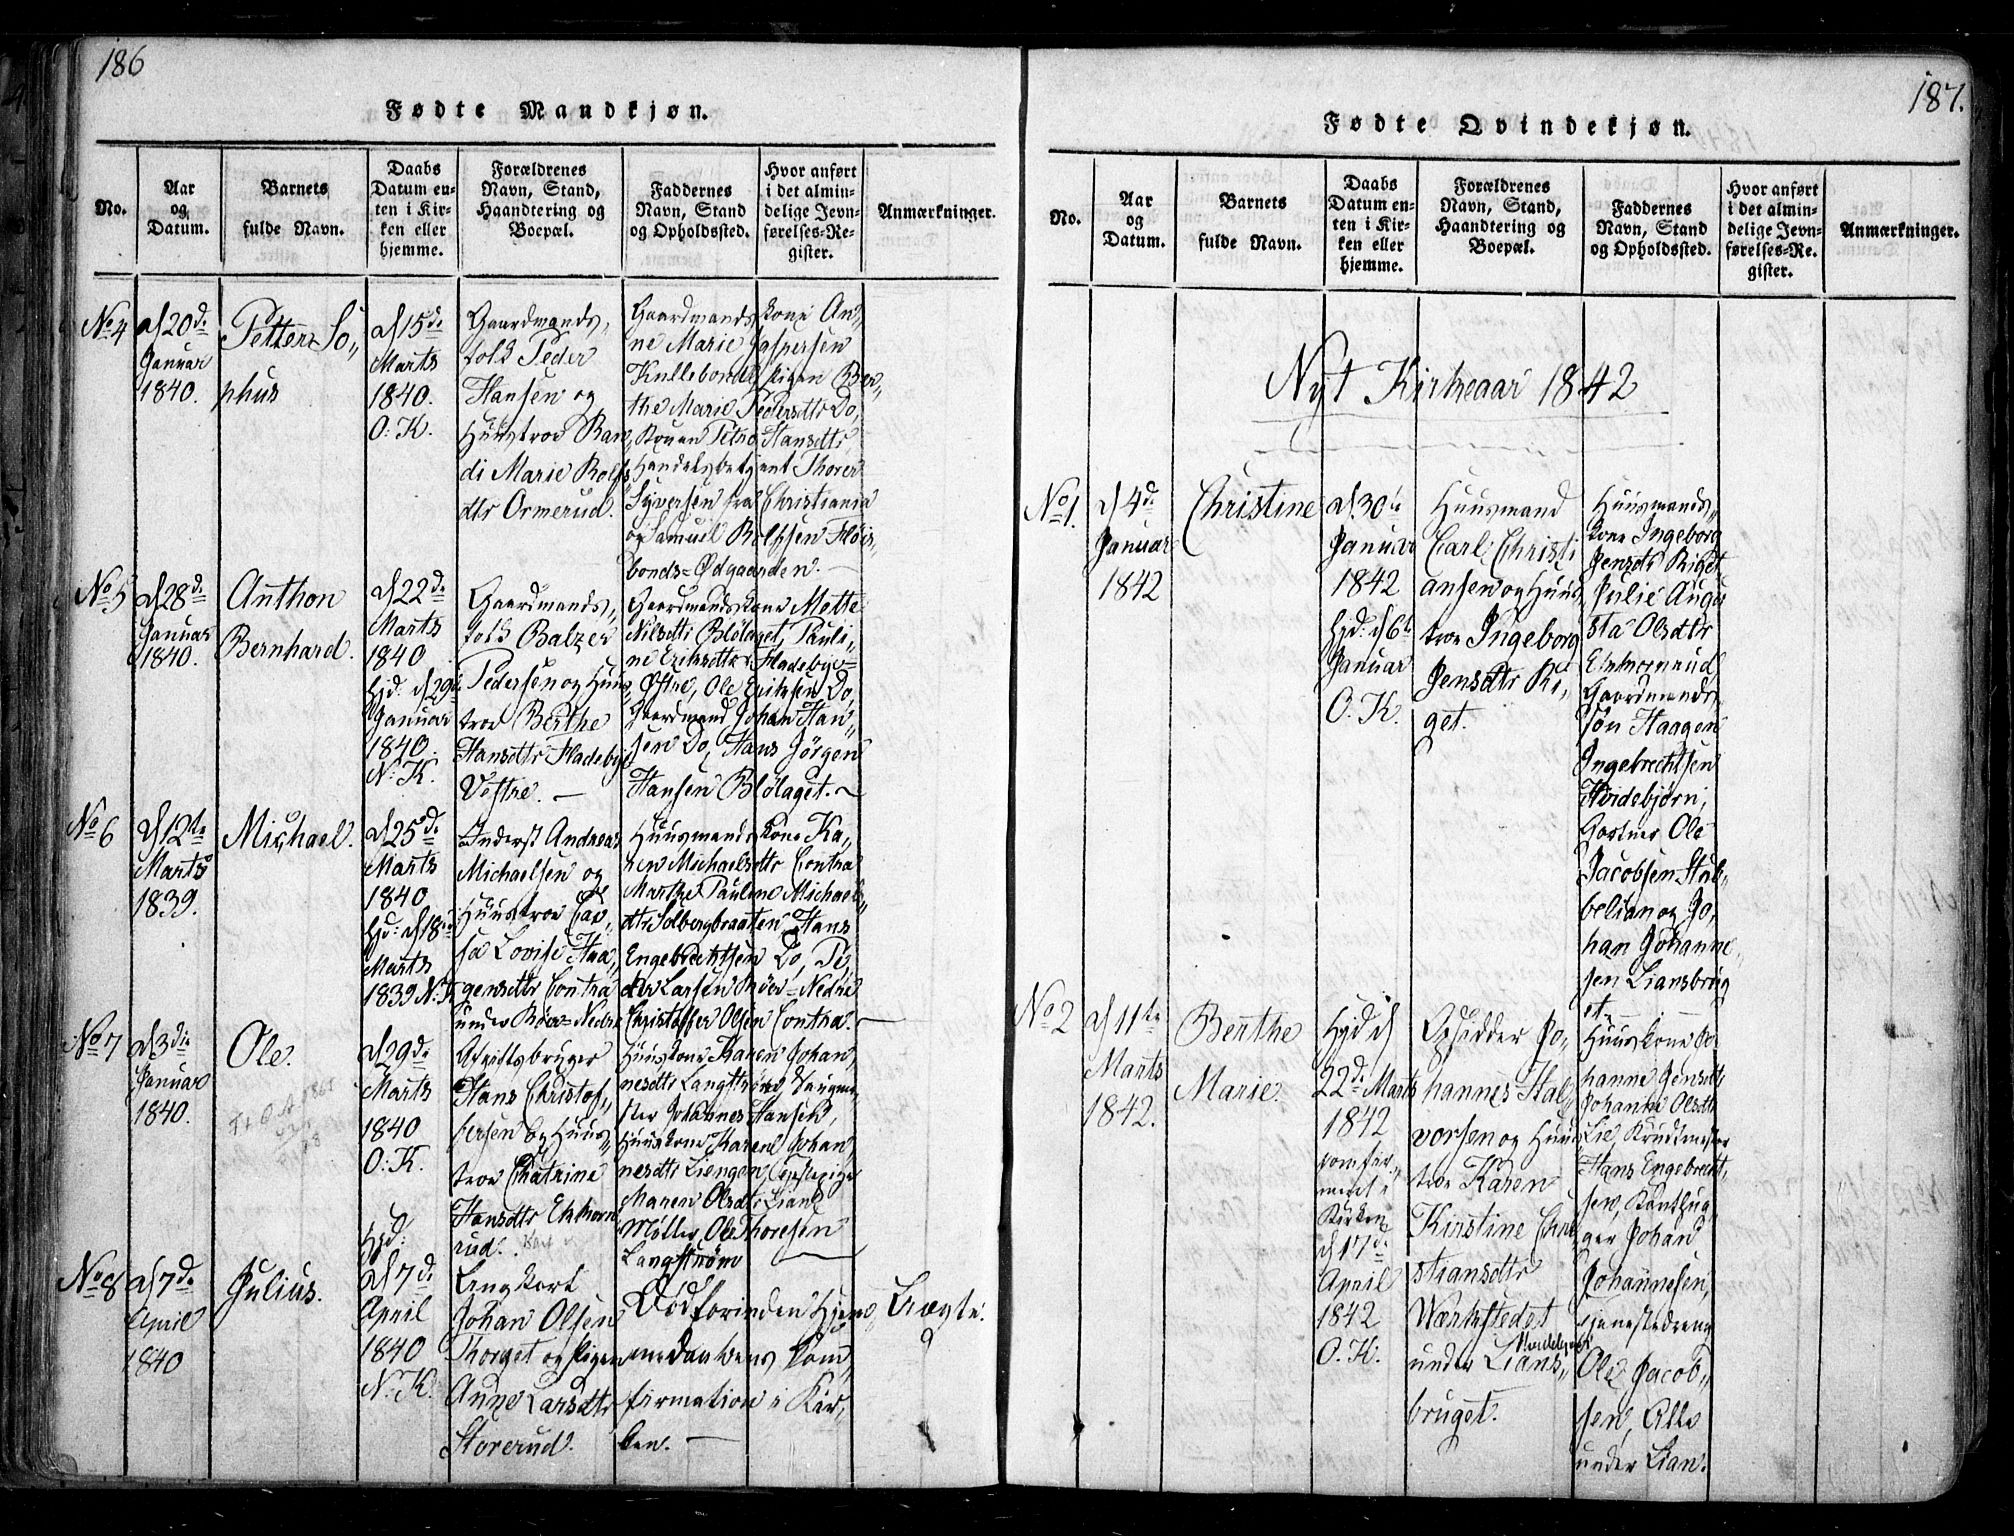 186
Fødte Mandkjøn.
No.
Aar
og
Datum.
Barnets
fulde Navn.
Daabs
Datum en-
ten i Kir-
ken eller
hjemme.
Forældrenes
Navn, Stand,
Haandtering og
Boepæl.
Faddernes
Navn, Stand
og Opholdssted.
Hvor anført
i det almin-
delige Jevn-
førelses-Re-
gister.
Anmærkninger.
No 4
d 20de
Januar
1840.
Petter So„
phus
d 15de
Marts
1840.
O. K.
Gaardmands„
folk Peder
Hansen og
Huustroe Ran„
di Marie Rolfs„
dtr Ormerud.
Gaardmandskone An„
ne Marie Jaspersen
Kulleborde pigen Ber„
the Marie Pedersdtr Do,
Konen Petro Hansdtr,
Handelsbetjent Thorer
Syversen fra Christiania
og Samuel Rolfsen Fløis„
bonds=Ødgaarden.
No 5
d 28de
Januar
1840.
Anthon
Bernhard.
d 22de
Marts
1840
Hjd: d 29de
Januar
1840.
N. K.
Gaardmands„
folk Balzer
Pedersen og Huus„
troe Berthe
Hansdtr Fladebye
Vestre. —
Gaardmandskone Mette
Nilsdtr Blølaget, Pauli„
ne Eriksdtr Fladebye=
Østre, Ole Eriksen Do,
Gaardmand Johan Han„
sen Do, Hans Jörgen
Hansen Blølaget. —
No 6
d 12te
Marts
1839.
Michael.
d 25de
Marts
1840
Hjd: d 18de
Marts
1839 N. K.
Inderst Andreas
Michaelsen og
Huustroe
sa Lovise Haa„
gensdtr Contra
under Röer=Nedre
Huusmandskone Ka„
ren Michaelsdtr Contra
Marthe Pauline Michaels„
dtr Solbergbraaten, Hans
Engebrechtsen Do, Pe„
der Larsen Röer=Nedre
Christoffer Olsen Contra. —
No 7
d 3die
Januar
1840.
Ole.
d 29de
Marts
1840
O. K.
Afgiftsbruger
Hans Christof„
fersen og Huus„
troe Chatrine
Hansdtr Ekhorn„
rud.
Huuskone Karen Johan„
nesdtr Langstrøm,
Johannes Hansen,
Huuskone Karen Johan„
nesdtr Liengen,
Maren Olsdtr Liand
Møller, Ole Thoresen
Langstrøm
No 8
d 7de
April
1840
Julius.
Hjd:
d 7de
April
1840
N. K.
Johan Olsen
Thorget og pigen
Anne Larsdtr
Storerud.
Død forinden Hjem„
medaabens Kon„
firmation i Kir„
ken. —
Uægte.
187.
Fødte Qvindekjøn.
No.
Aar
og
Datum.
Barnets
fulde Navn.
Daabs
Datum en-
ten i Kir-
ken eller
hjemme.
Forældrenes
Navn, Stand,
Haandtering og
Boepæl.
Faddernes
Navn, Stand
og Opholdssted.
Hvor anført
i det almin-
delige Jevn-
førelses-Re-
gister.
Anmærkninger.
Nyt Kirkeaar 1842
No 1.
d 4de
Januar
1842
Christine
d 30te
Januar
1842
Hjd: d 6te
Januar
O. K.
Huusmand
Carl Christi
ansen og Huus„
troe Ingeborg
Jensdtr Ri„
get.
Huusmands„
kone Ingeborg
Jensdtr Riget
Julie Augu
sta Olsdtr
Ekhornrud
Gaardmands
søn Haagen
Ingebrechtsen
Hvidebjørn,
Ole
Jacobsen Stub„
belian og Jo„
han Johanne„
sen Liansbrug
et.
No 2
d 11te
Marts
1842.
Berthe
Marie
Hjd d
22de Marts
1842
confir„
meret i
Kirken
d 17de
April
1842
O. K.
Opsidder Jo„
hannes Hal„
vorsen og Huus„
troe Karen
Kirstine Chri„
stiansdtr
Værkstedet
under Lians„
bruget.
Huuskone Jo„
hanne Jensdtr
Johanne Olsdtr
Lie, Krudtmester
Hans Engebrecht„
sen,
ger Johan
Johannesen,
tjenestedreng
Ole Jacob„
sen, Alle
under Lian.